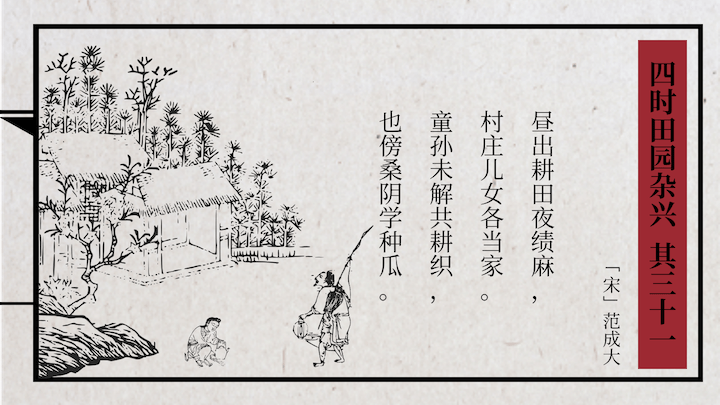 四时田园杂兴 其三十一
「宋」范成大
昼出耕田夜绩麻，
村庄儿女各当家。
童孙未解共耕织，
也傍桑阴学种瓜。